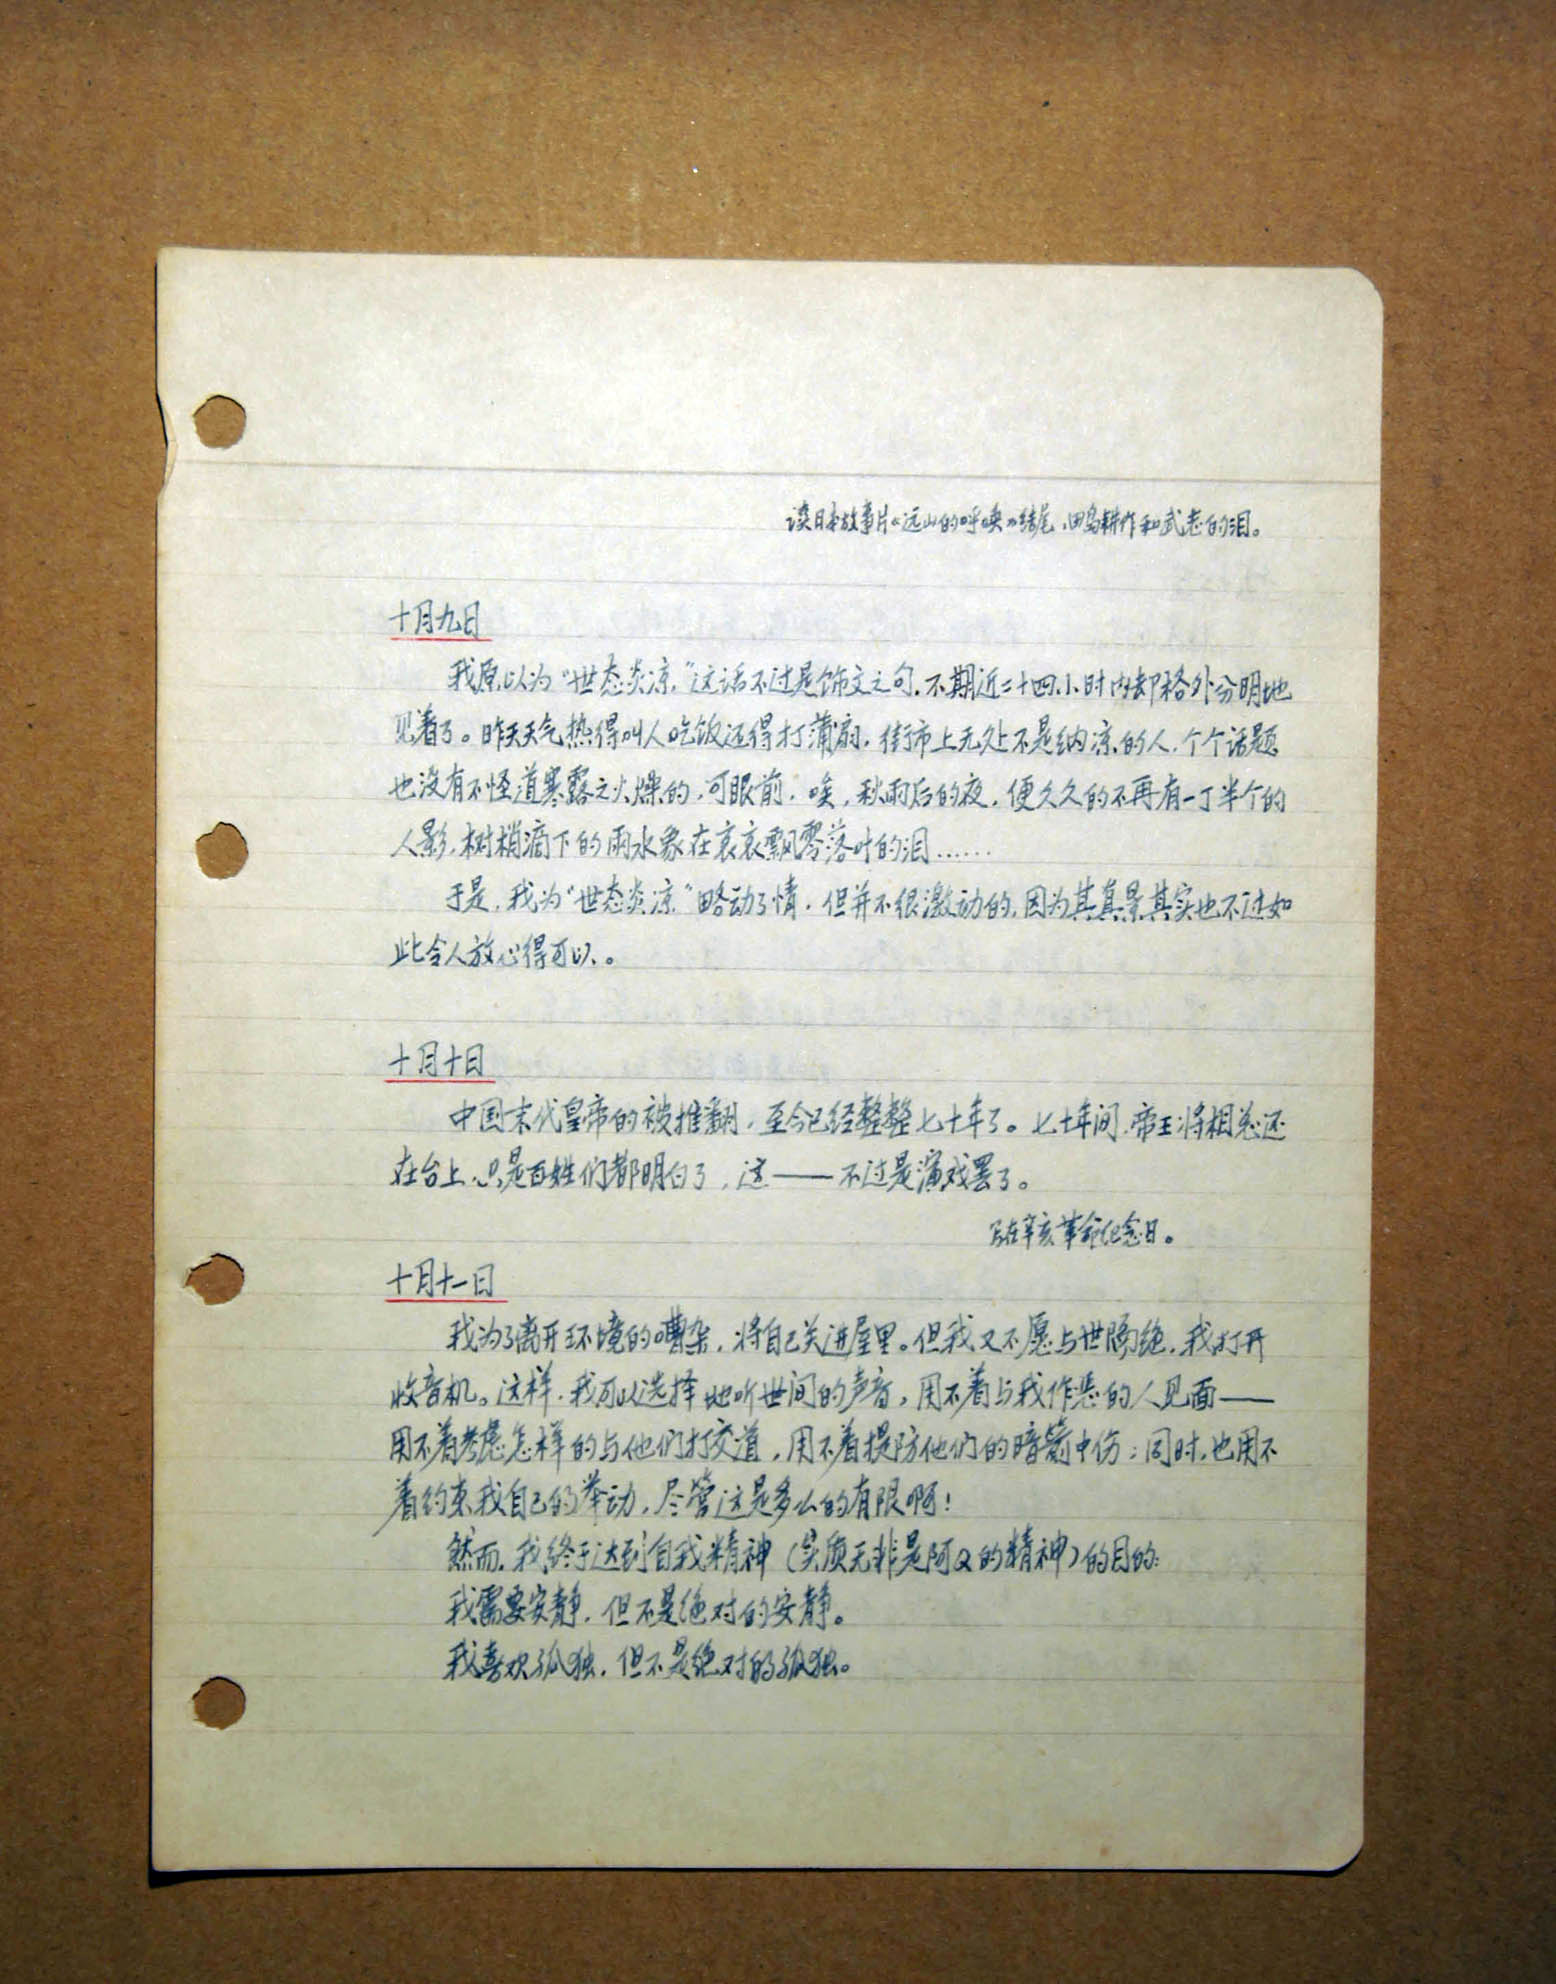 谈日本故事片《远山的呼唤》结尾，田岛耕作和武志的泪。
十月九日
我原以为“世态炎凉”这话不过是饰文之句，不期近二十四小时内却格外分明地
见着了。昨天天气热得叫人吃饭还得打蒲扇，街市上无处不是纳凉的人，个个话题
也没有不怪道寒露之火燥的，可眼前，唉，秋雨后的夜，便久久的不再有一丁半个的
人影，树梢滴下的雨水象在哀哀飘零落叶的泪……
于是，我为“世态炎凉”略动了情，但并不很激动的，因为其真景其实也不过如
此令人放心得可以。
十月十日
中国末代皇帝的被推翻，至今已经整整七十年了。七十年间，帝王将相总还
在台上，只是百姓们都明白了，这——不过是演戏罢了。
写在辛亥革命纪念日。
十月十一日
我为了离开环境的嘈杂，将自己关进屋里。但我又不愿与世隔绝，我打开
收音机。这样，我可以选择地听世间的声音，用不着与我作恶的人见面——
用不着考虑怎样的与他们打交道，用不着提防他们的暗箭中伤；同时，也用不
着约束我自己的举动，尽管这是多么的有限啊！
然而，我终于达到自我精神（实质无非是阿Q的精神）的目的：
我需要安静，但不是绝对的安静。
我喜欢孤独，但不是绝对的孤独。